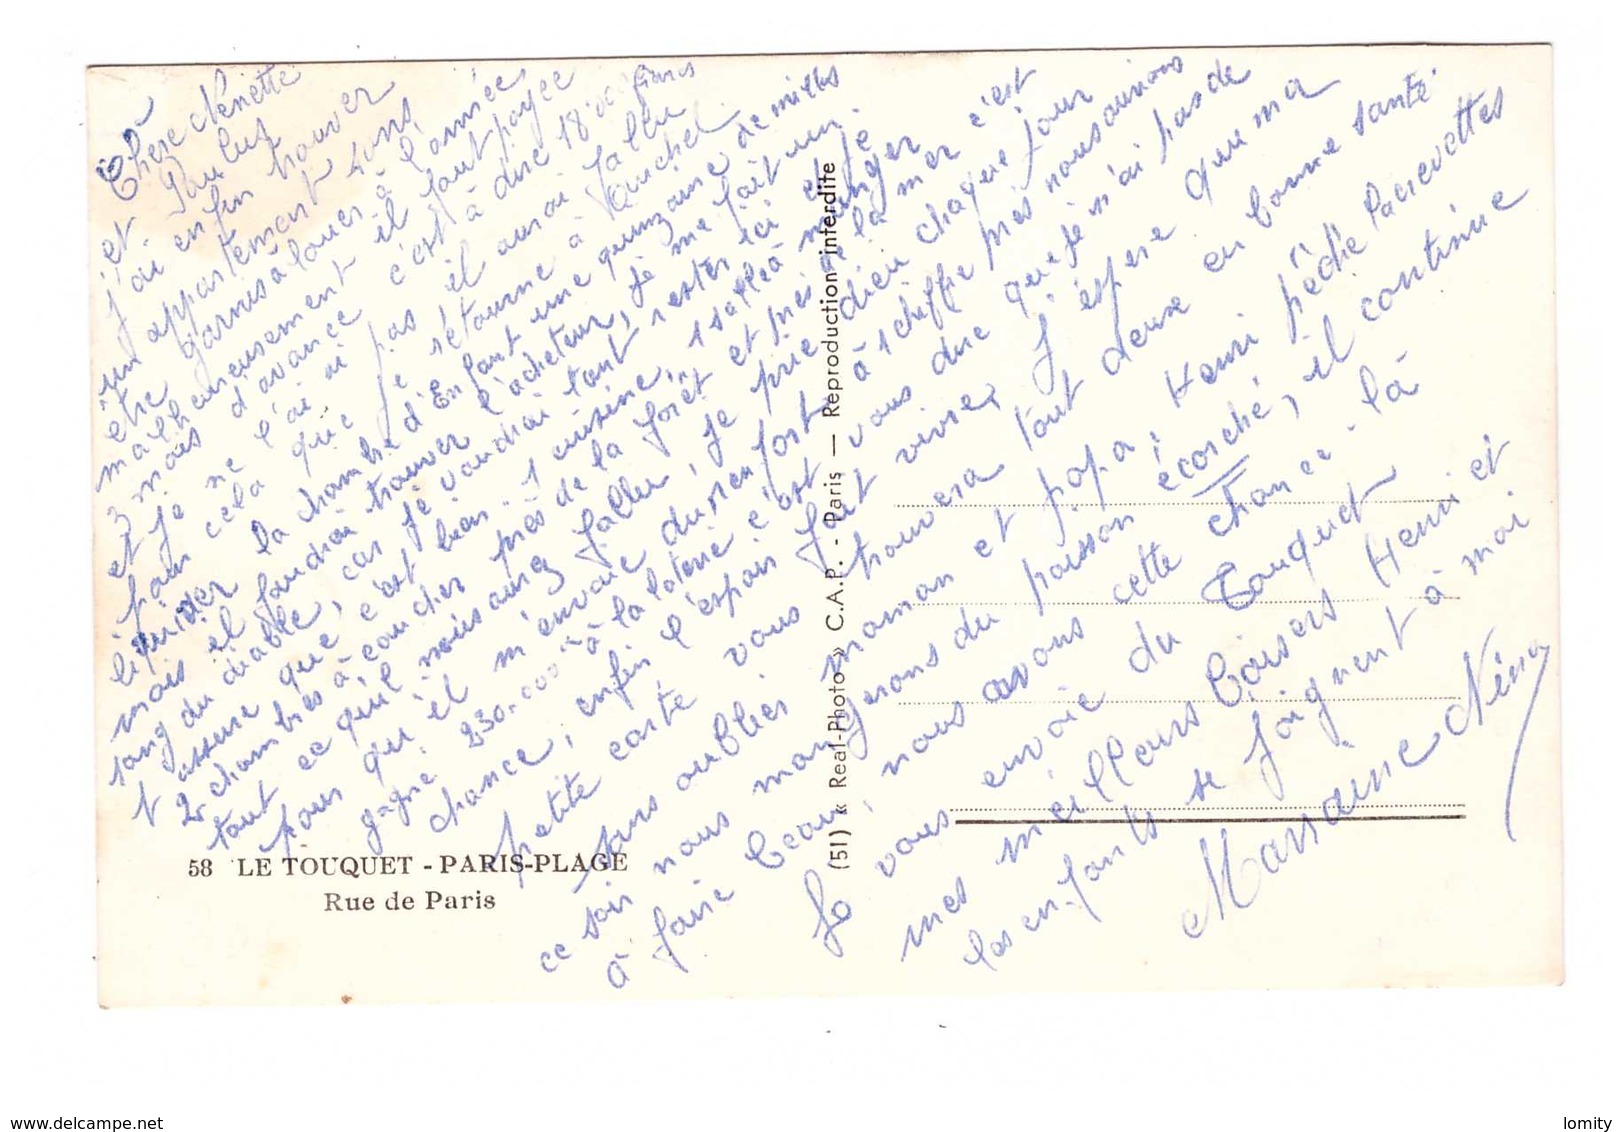 Chère Nénette
et Paulus
j'ai enfin trouver
un appartement sans
être garnis à louer à l'année
malheureusement il faut payée
3 mois d'avance c'est à dire 18.000 francs
et je ne l'ai pas il aurai fallu
pour cela que je retourne à Auchel
liquider la chambre d'Enfant une quinzaine de milles
mais il faudrai trouver l'acheteur, je me fait un
sang du diable, car je voudrai tant rester ici et je
t'assure que c'est bien. 1 cuisine, 1 salle à manger
2 chambres à coucher près de la forêt et près de la mer c'est
tout ce qu'il nous aurez fallu, je prie dieu chaque jour
pour qu'il m'envoie du renfort à 1 chiffre près nous aurions
gagné 230.000 à la loterie c'est vous dire que je n'ai pas de
chance, enfin l'espoir fait vivre, j'espère que ma
petite carte vous trouvera tout deux en bonne santé
sans oublier maman et papa, Henri pêche la crevettes
ce soir nous mangerons du poisson écorché, il continue
à faire beau, nous avons cette chance-là
Je vous envoie du Touquet
mes meilleurs baisers Henri et
les enfants se joignent à moi
Marraine Nina
58 LE TOUQUET - PARIS-PLAGE
Rue de Paris
(51) « Real-Photo » C.A.P. - Paris — Reproduction interdite
www.delcampe.net
lomity